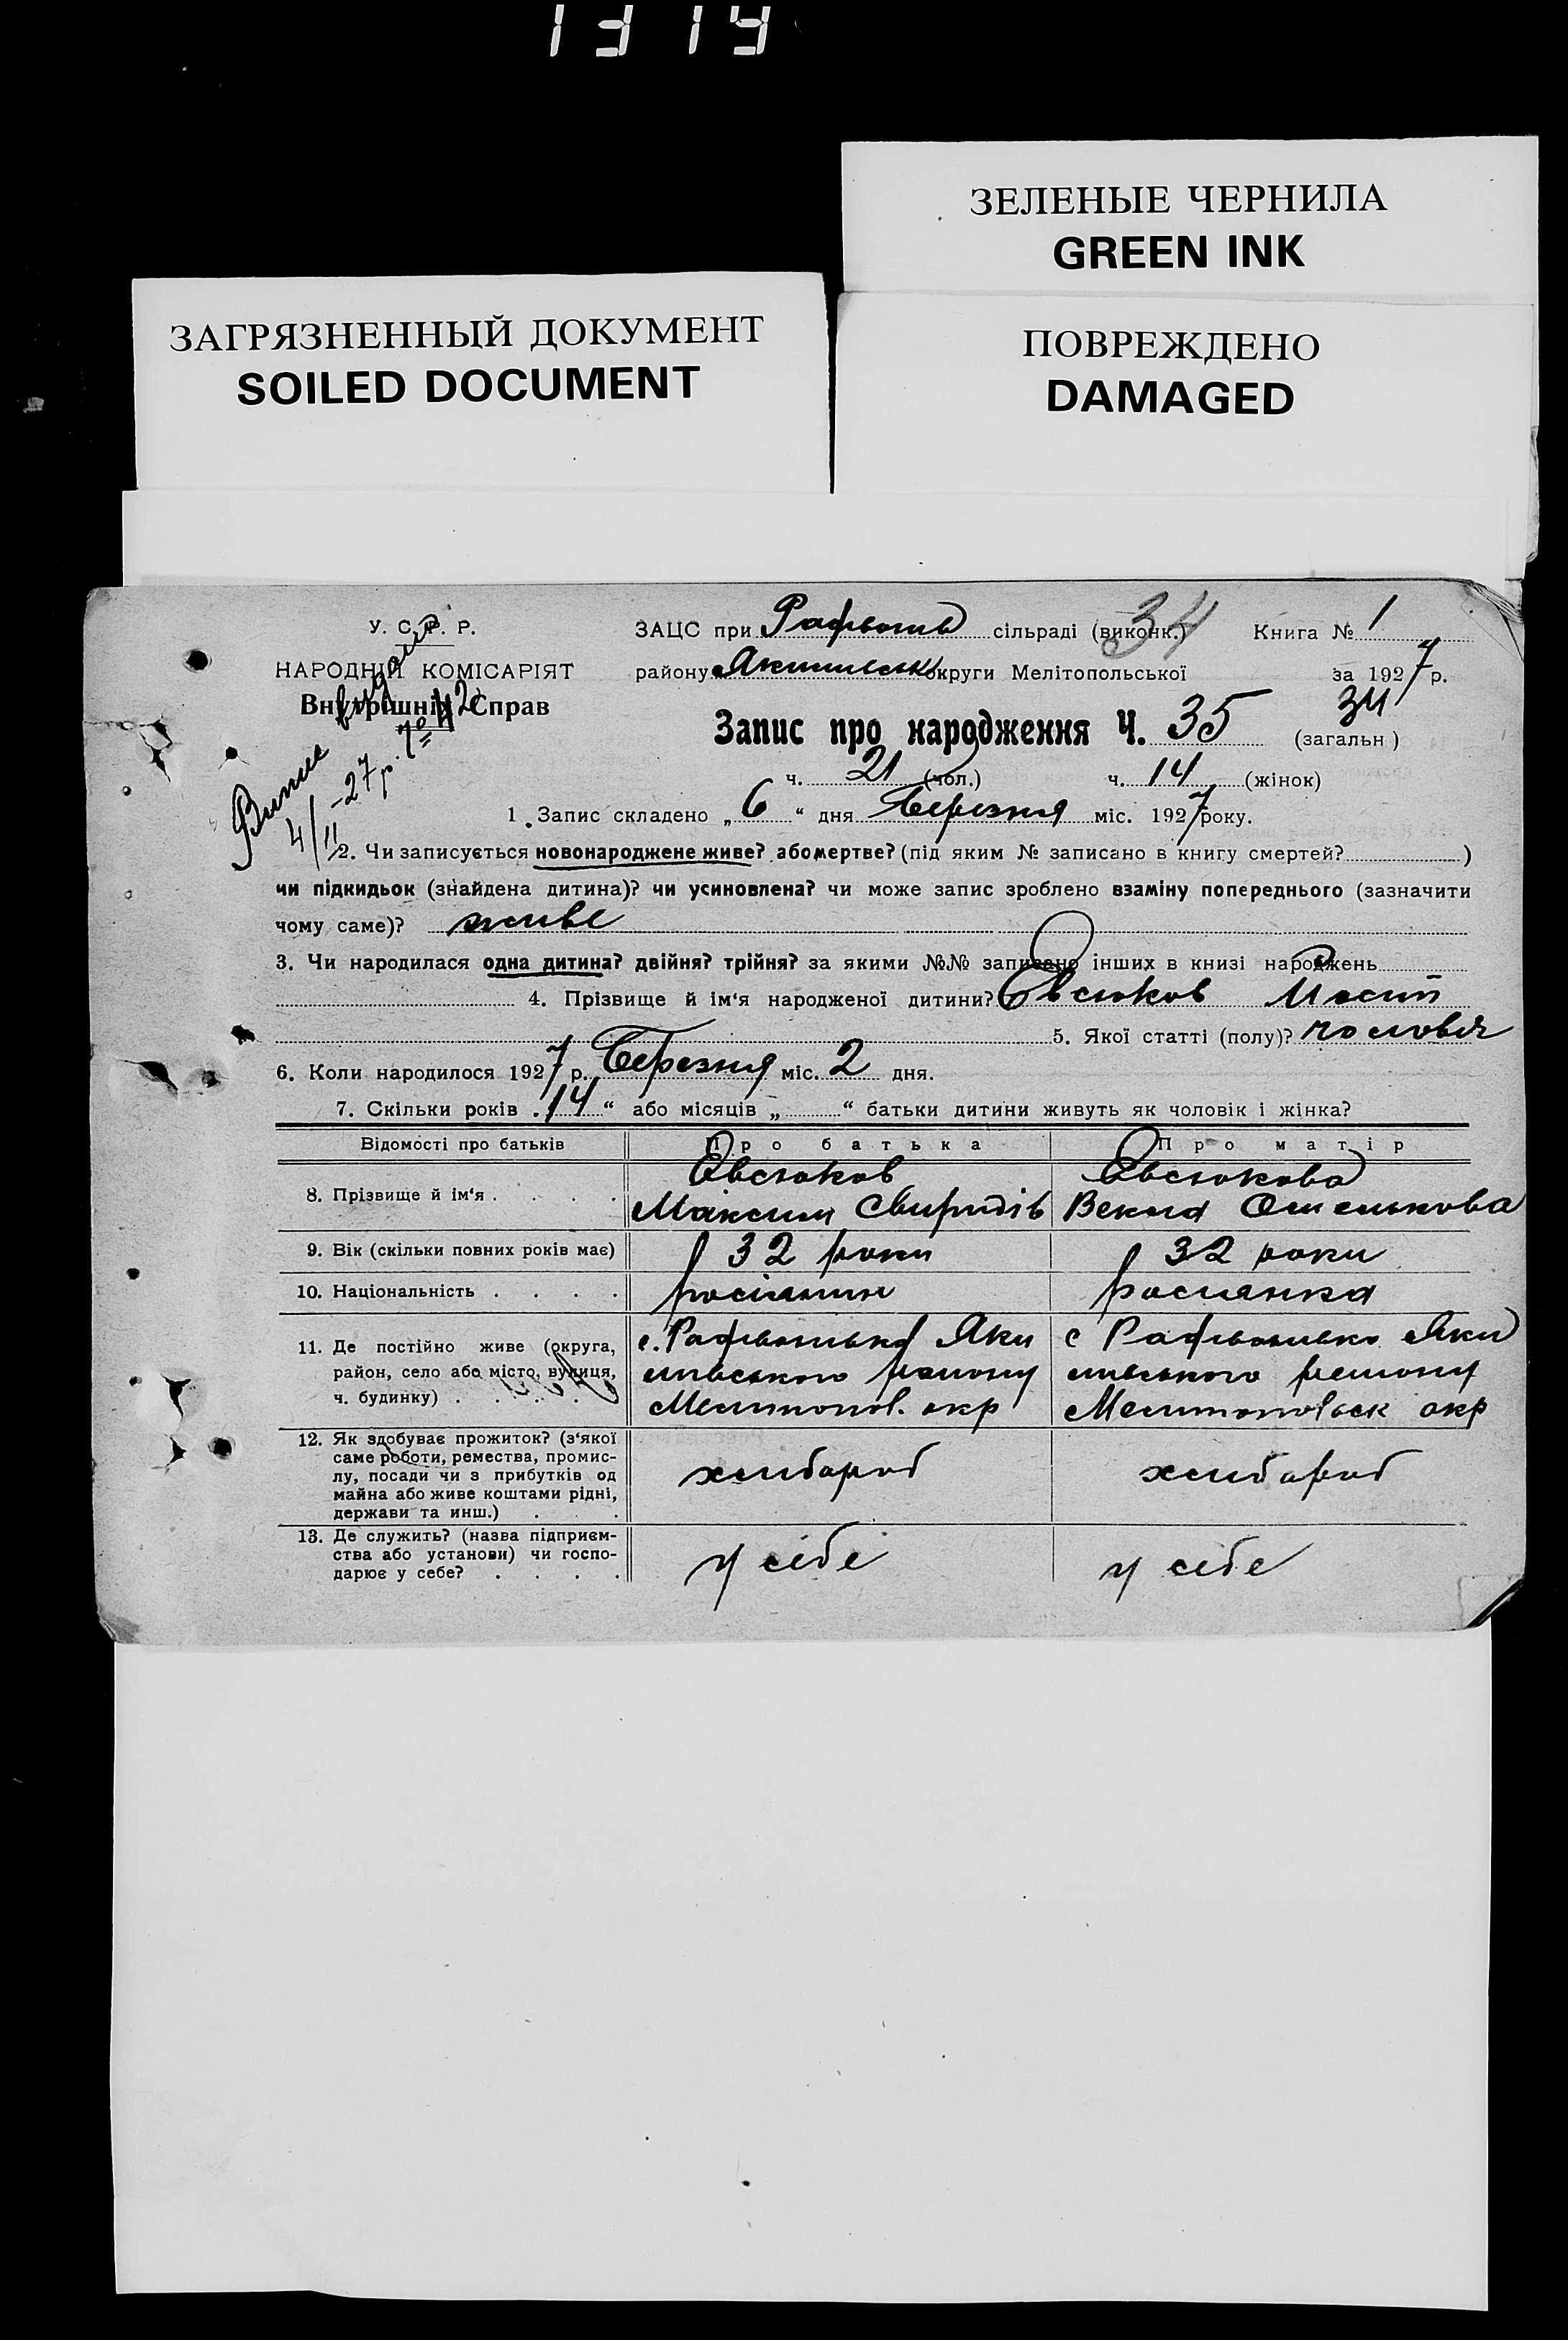 1314
ЗЕЛЕНЫЕ ЧЕРНИЛА
GREEN INK
ЗАГРЯЗНЕННЫЙ ДОКУМЕНТ
SOILED DOCUMENT
ПОВРЕЖДЕНО
DAMAGED
У. С. Р. Р.
НАРОДНІЙ КОМІСАРІЯТ
Внутрішніх Справ
ЗАЦС при сільраді (виконк.) 34 Книга № 1
району округи Мелітопольської за 1927 р.
Запис про народження Ч. 35 34 (загальн)
ч. 21 (чол.) ч. 14 (жінок)
1. Запис складено „ 6 “ дня Березня міс. 1927 року.
2. Чи записується новонароджене живе? або мертве? (під яким № записано в книгу смертей? )
чи підкидьок (знайдена дитина)? чи усиновлена? чи може запис зроблено взаміну попереднього (зазначити
чому саме)? живе
3. Чи народилася одна дитина? двійня? трійня? за якими №№ записано інших в книзі народжень
4. Прізвище й ім‘я народженої дитини? Євсюков Йосип
5. Якої статті (полу)? чоловіч
6. Коли народилося 1927 р. Березня міс. 2 дня.
7. Скільки років „14“ або місяців „ “ батьки дитини живуть як чоловік і жінка?
Відомості про батьків Про батька Про матір
8. Прізвище й ім‘я . . . . Євсюков Євсюкова
Максим Свиридів Омелькова
9. Вік (скільки повних років має) 32 роки 32 роки
10. Національність . . . . росіянин росиянка
11. Де постійно живе (округа,
район, село або місто, вулиця,
ч. будинку) . . . . .
Мелітопол. окр Мелитопольск окр
12. Як здобуває прожиток? (з‘якої
саме роботи, ремества, промис-
лу, посади чи з прибутків од
майна або живе коштами рідні,
держави та инш.) . .
хлибороб хлибороб
13. Де служить? (назва підприєм-
ства або установи) чи госпо-
дарює у себе? . . . .
у себе у себе